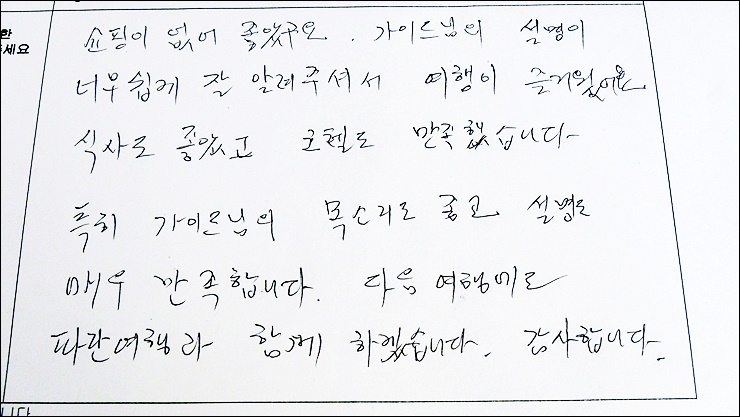 한
세요
쇼핑이 없어 좋았구요. 가이드님의 설명이
너무쉽게 잘 알려주셔서 여행이 즐거웠어요
식사도 좋았고 호텔도 만족했습니다
특히 가이드님의 목소리도 좋고 설명도
매우 만족합니다. 다음 여행에도
파란여행과 함께 하겠습니다. 감사합니다.
니다